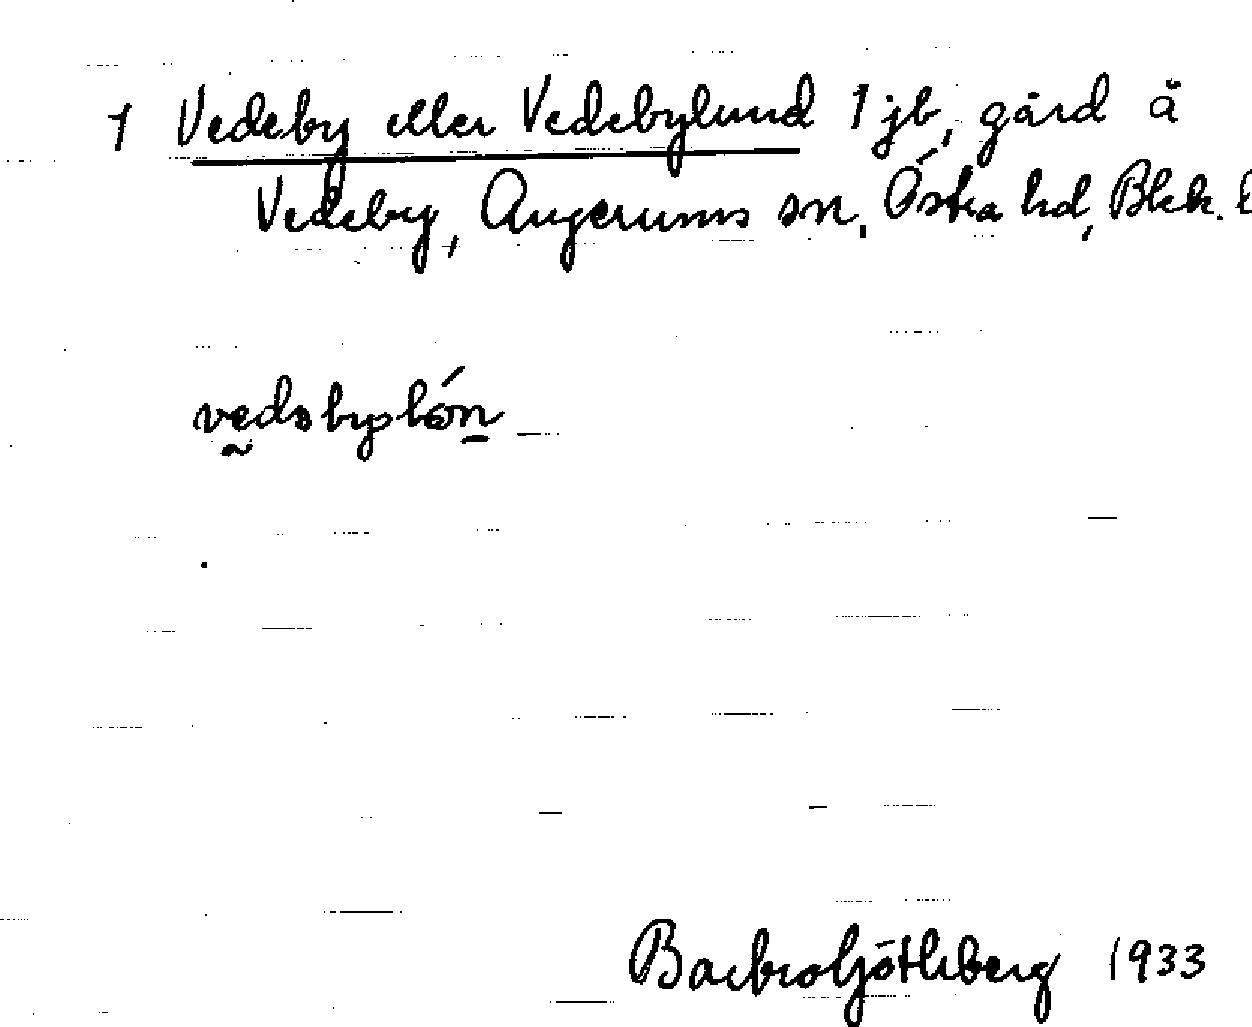 1 Vedeby eller Vedebylund 1 jb, gård å
Vedeby, Augerums sn, Östra hd, Blek. l
Barbro Götlberg 1933